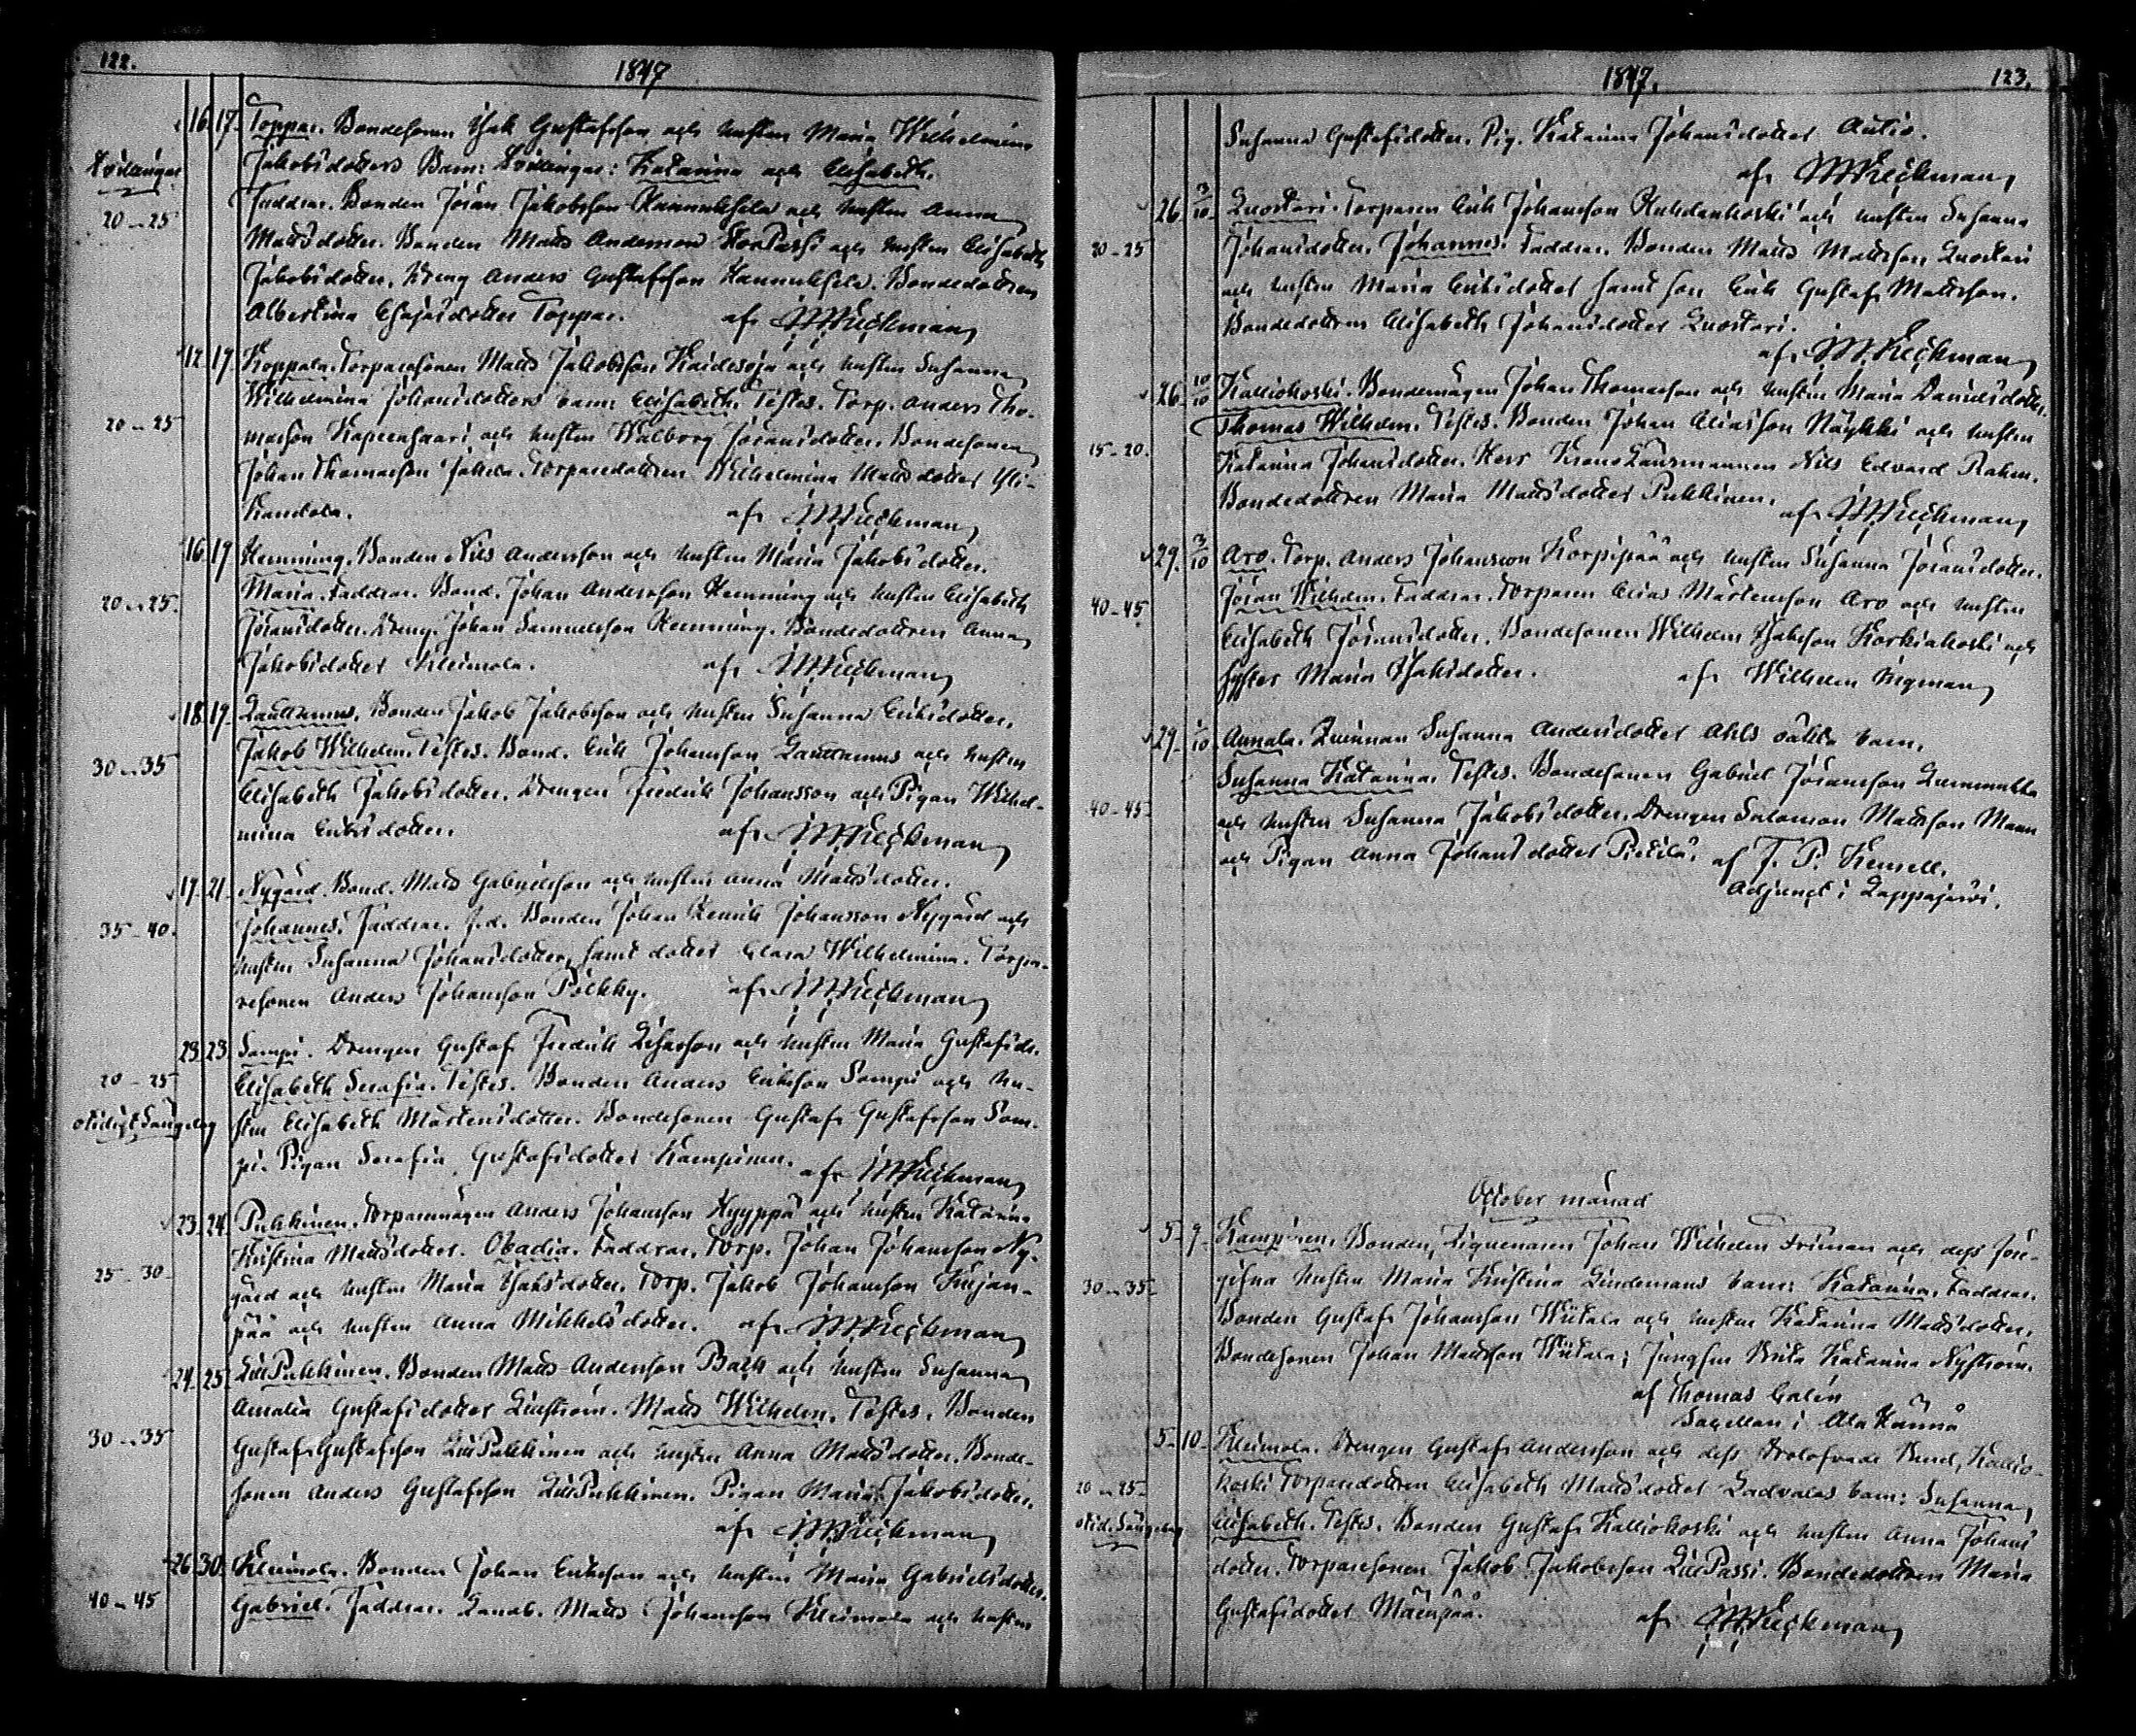 122.
1847
16 17 Toppar. Bondesonen Isak Gustafsson och hustru Maria Wilhelmina
Tvillingar
Jakobsdotters Barn: Tvillingar: Katarina och Elisabeth.
20-25
Faddrar. Bonden Jöran Jakobsson Hannuksela och hustru Anna
Mattsdotter. Bonden Matts Andersson StorPassi och hustru Elisabeth
Jakobsdotter. Dreng Anders Gustafsson Hannuksela. Bondedottren
Albertina Esajasdotter Toppar. af
12 17 Koppala. Torparesonen Matts Jakobsson Kaidesoja och hustru Susanna
20-25
Wilhelmina Johansdotters barn: Elisabeth. Testes. Torp. Anders Tho-
masson Kapeensaari och hustru Walborg Jöransdotter. Bondesonen
Johan Thomasson Jakila. Torparedottren Wilhelmina Mattsdotter Yli-
Kandola. af
16 17 Hemming. Bonden Nils Andersson och hustru Maria Jakobsdotter.
20-25.
Maria. Faddrar. Bond. Johan Andersson Hemming och hustru Elisabeth
Jöransdotter. Dreng. Johan Samuelsson Hemming. Bondedottren Anna
Jakobsdotter Kleimola. af
18 19 Lauttamus. Bonden Jakob Jakobsson och hustru Susanna Eriksdotter.
30-35
Jakob Wilhelm. Testes. Bond. Erik Johansson Lauttamus och hustru
Elisabeth Jakobsdotter. Drengen Fredrik Johansson och Pigan Wilhel-
mina Eriksdotter. af
17. 21. Nygård. Bond. Matts Gabrielsson och hustru Anna Mattsdotter.
35-40.
Johannes. Faddrar. f.d. Bonden Johan Henrik Johansson Nygård och
hustru Susanna Johansdotter, samt dotter Clara Wilhelmina. Torpa-
resonen Anders Johansson Pölkky. af
23 23 Sompi. Drengen Gustaf Fredrik och hustru Maria Gustafsdr.
20-25
Elisabeth Serafia. Testes. Bonden Anders Eriksson Sompi och hu-
otidigt Sängelag
stru Elisabeth Mårtensdotter. Bondesonen Gustaf Gustafsson Som-
pi. Pigan Serafia Gustafsdotter Kampinen. af
23 24 Pukkinen. Torparemågen Anders Johansson Hyyppä och hustru Katarina
25-30
Kristina Mattsdotter. Obadia. Faddrar. Torp. Johan Johansson Ny-
gård och hustru Maria Isaksdotter. Torp. Jakob Johansson Kujan-
pää och hustru Anna Mikkelsdotter. af
24 25 LillPukkinen. Bonden Matts Andersson Back och hustru Susanna
30-35
Amalia Gustafsdotter Liuström. Matts Wilhelm. Testes. Bonden
Gustaf Gustafsson LillPukkinen och hustru Anna Mattsdotter. Bonde-
sonen Anders Gustafsson LillPukkinen. Pigan Maria Jakobsdotter.
af
26 30 Kleimola. Bonden Johan Eriksson och hustru Maria Gabrielsdotter.
40-45
Gabriel. Faddrar. Landb. Matts Johansson Kleimola och hustru
1847.
123.
Susanna Gustafsdotter. Pig. Katarina Johansdotter Autio.
af
26 3/10 Luostari. Torparen Erik Johansson och hustru Susanna
20-25
Johansdotter. Johannes. Faddrar. Bonden Matts Mattsson Luostari
och hustru Maria Eriksdotter samt son Erik Gustaf Mattsson.
Bondedottren Elisabeth Johansdotter Luostari.
af
26 10/10 Kalliokoski. Bondemågen Johan Thomasson och hustru Maria Danielsdotter.
15-20.
Thomas Wilhelm. Testes. Bonden Johan Eliasson Näykki och hustru
Katarina Johansdotter. Herr KronoLänsmannen Nils Edvard Rahm.
Bondedottren Maria Mattsdotter Pukkinen. af
29. 3/10 Aro. Torp. Anders Johansson Korpipää och hustru Susanna Jöransdotter.
40-45
Jöran Wilhelm. Faddrar. Torparen Elias Mårtensson Aro och hustru
Elisabeth Jöransdotter. Bondesonen Wilhelm Isaksson Korkiakoski och
syster Maria Isaksdotter. af Wilhelm Bigman
29 1/10 Annala. Quinnan Susanna Andersdotter Ahls oäkta barn.
Susanna Katarina. Testes. Bondesonen Gabriel Jöransson Lammukka
40-45
och hustru Susanna Jakobsdotter. Drengen Salomon Mattsson
och Pigan Anna Johansdotter Pietilä. af J. P. Kensell.
Adjunct i Lappajärvi.
October månad
5 9 Kampinen. Bonden, Johan Wilhelm Friman och dess för-
30-35
hustru Maria Kristina Lindemans barn: Katarina. Faddrar.
Bonden Gustaf Johansson Wiitala och hustru Katarina Mattsdotter.
Bondesonen Johan Mattsson Wiitala; Jungfru Brita Katarina Nyström.
af Thomas Calén
Capellan i AlaHärmä
5 10 Kleimola. Drengen Gustaf Andersson och dess trolofvade Brud, Kallio-
20-25
koski Torparedottren Elisabeth Mattsdotter Ladvalas barn: Susanna
otid. Sängelag
Elisabeth. Testes. Bonden Gustaf Kalliokoski och hustru Anna Johans
dotter. Torparesonen Jakob Jakobsson LillPassi. Bondedottren Maria
Gustafsdotter Mäenpää. af